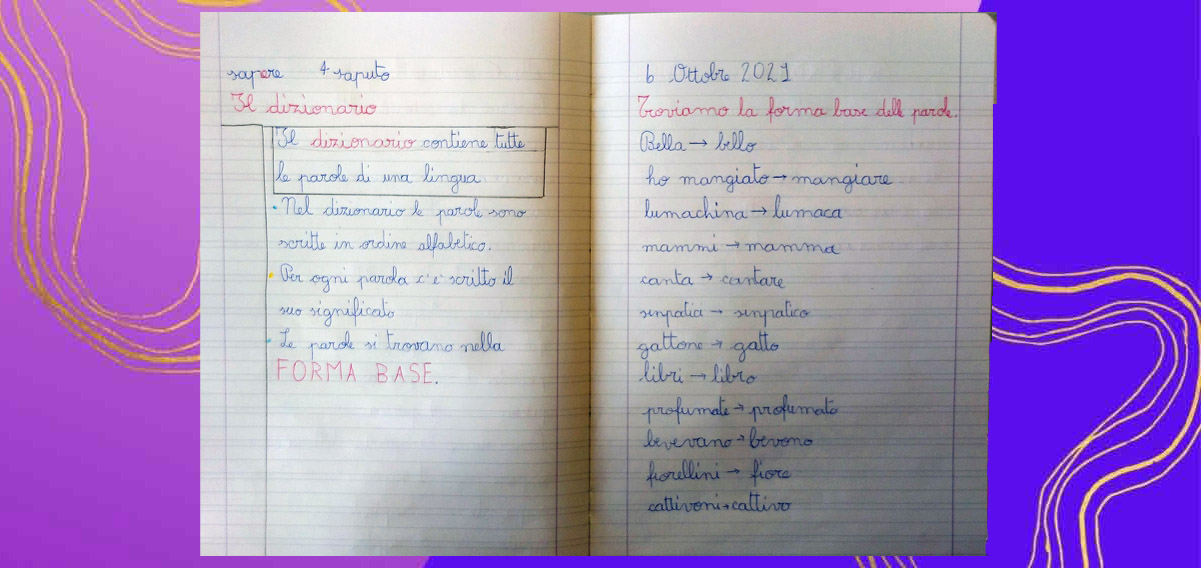 sapere 4 saputo
Il dizionario
Il dizionario contiene tutte
le parole di una lingua
• Nel dizionario le parole sono
scritte in ordine alfabetico.
• Per ogni parola c'è scritto il
suo significato
• Le parole si trovano nella
FORMA BASE.
6 Ottobre 2021
Troviamo la forma base delle parole.
Bella → bello
ho mangiato → mangiare
lumachina → lumaca
mammi → mamma
canta → cantare
sinpatica → sinpatico
gattone → gatto
libri → libro
profumate → profumato
bevevano → bevono
fiorellini → fiore
cattivoni → cattivo